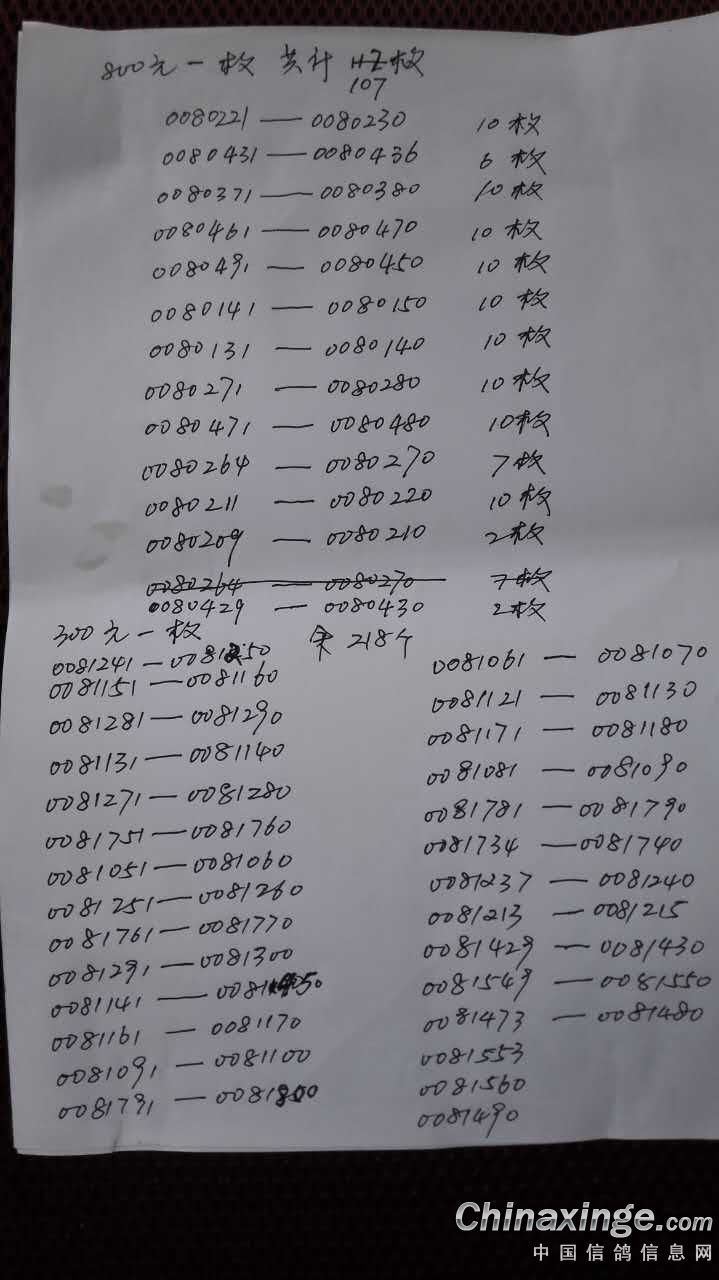 800元一枚 共计 112枚
107
0080221 — 0080230 10枚
0080431 — 0080436 6枚
0080371 — 0080380 10枚
0080461 — 0080470 10枚
0080491 — 0080450 10枚
0080141 — 0080150 10枚
0080131 — 0080140 10枚
0080271 — 0080280 10枚
0080471 — 0080480 10枚
0080264 — 0080270 7枚
0080211 — 0080220 10枚
0080209 — 0080210 2枚
0080264 — 0080270 7枚
0080429 — 0080430 2枚
300元一枚 余 218个
0081241 — 0081250
0081151 — 0081160
0081281 — 0081290
0081131 — 0081140
0081271 — 0081280
0081751 — 0081760
0081051 — 0081060
0081251 — 0081260
0081761 — 0081770
0081291 — 0081300
0081141 — 0081150
0081161 — 0081170
0081091 — 0081100
0081791 — 0081800
0081061 — 0081070
0081121 — 0081130
0081171 — 0081180
0081081 — 0081090
0081781 — 0081790
0081734 — 0081740
0081237 — 0081240
0081213 — 0081215
0081429 — 0081430
0081549 — 0081550
0081473 — 0081480
0081553
0081560
0081490
Chinaxinge.com
中国信鸽信息网